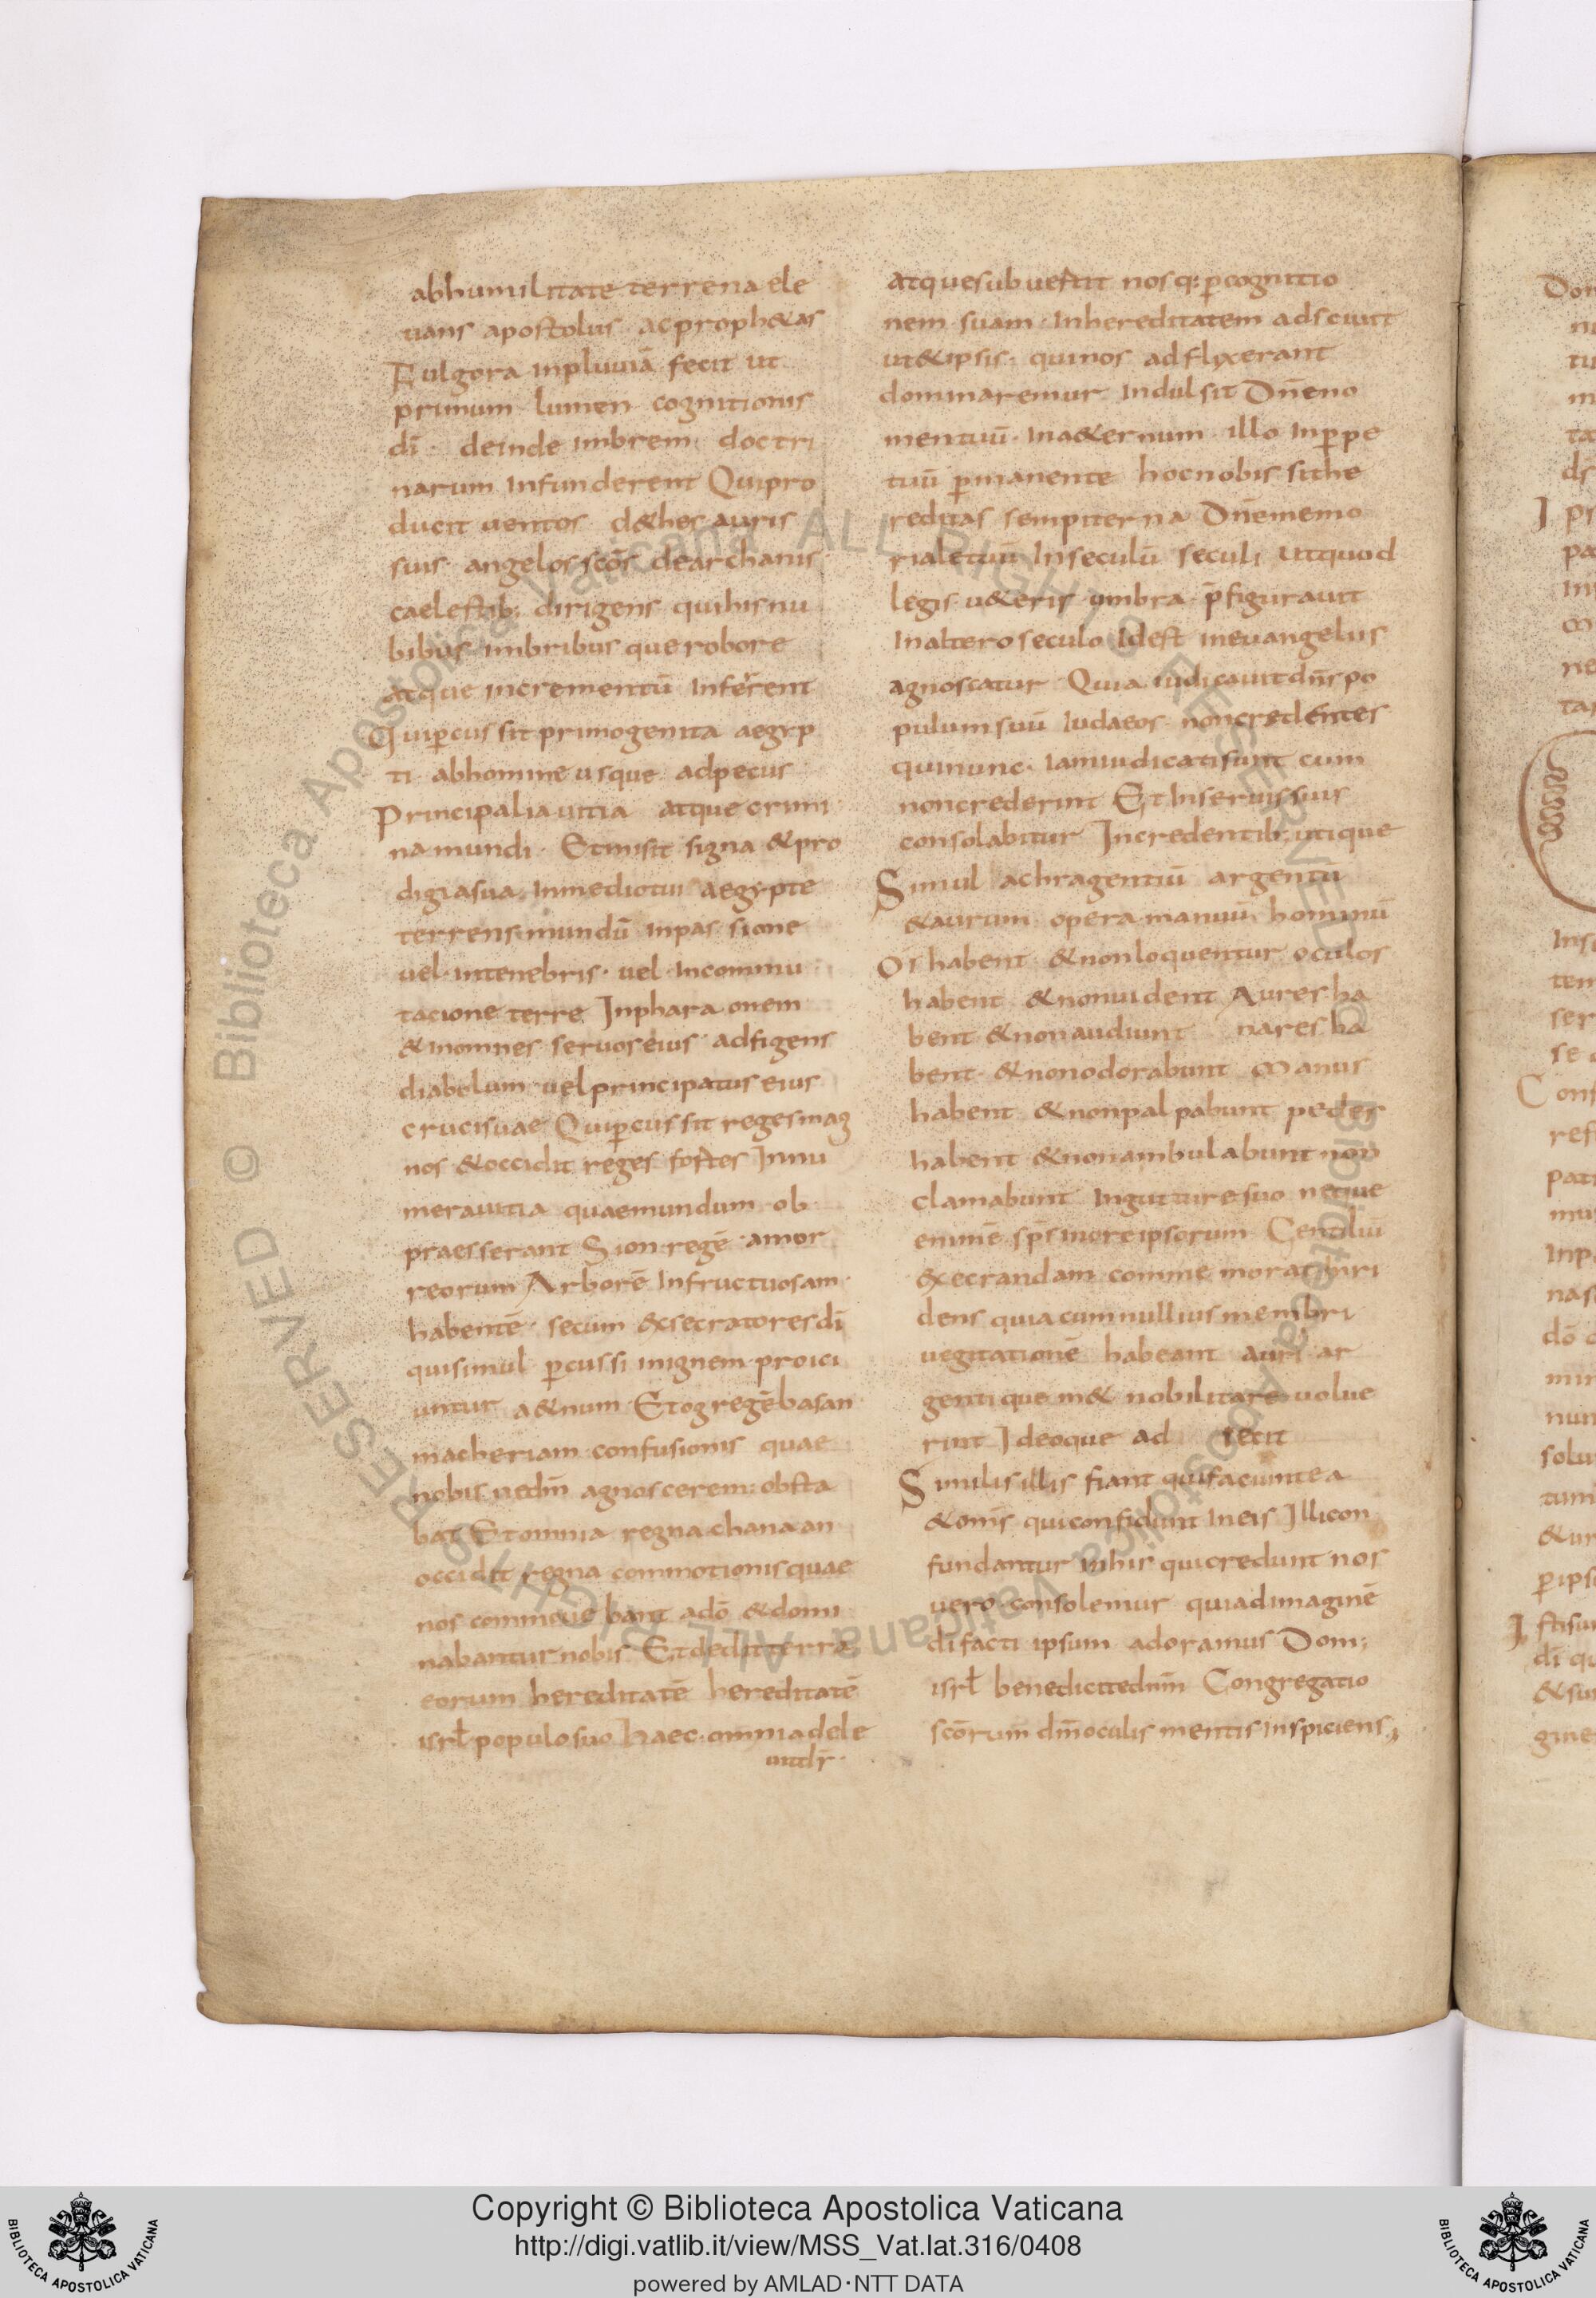 abhumilitate terrena ele
uans apostolus acproph&as
Fulgora inpluuiā fecit ut
primum lumen cognitionis
dī deinde imbrem doctri
narum infunderent Quipro
ducit uentos d&hes auris
suis angelos scōs dearchanis
caelestib: dirigens quihisnu
bibus imbribus querobore
atque incrementū inferrent
Quip̄cussit primogenita aegyp
ti abhomine usque adpecus
Principalia uitia atque crimi
na mundi Etmisit signa &pro
digiasua inmediotui aegypte
terrens mundū inpassione
uel intenebris uel incommu
tacione terre Inpharaonem
&inomnes seruoseius adfigens
diabolum uelprincipatus eius
crucisuae Quip̄cussit reges mag
nos &occidit reges fortes Innu
merauitia quaemundum ob
praesserant Sion regē amor
reorum Arborē infructuosam
habentē secum &secratoresdī
quisimul p̄cussi inignem proici
untur a&rnum Etog regēbasan
macheriam confusionis quae
nobis nedn̄m agnoscerem: obsta
bat Et omnia regna chanaan
occidit regna commotionisquae
nos commouebant adō &domi
nabantur nobis Etdeditterrā
eorum hereditatē hereditatē
isrł populosuo haec omnia dele
uitdr̄
atquesubuertit nosq: p̄cognitio
nem suam Inhereditatem adsciuit
ut&ipsis quinos adflyxerant
dominaremur indulsit Dn̄eno
mentuū Ina&ernum illo inp̄pe
tuū p̄manente hocnobis sithe
reditas sempiterna Dn̄ememo
rialetuū Inseculū seculi utquod
legis u&eris umbra p̄figurauit
Inaltero seculo idest ineuangeliis
agnoscatur Quia iudicauitdn̄spo
pulumsuū Iudaeos noncredentes
quinunc Iamiudicatisunt cum
noncrederint Et Inseruissuis
consolabitur Incredentib: utique
Simul achragentiū argentū
&aurum opera manuū hominū
Os habent &nonloquentur oculos
habent &nonuident Aures ha
bent &nonaudiunt nares ha
bent &nonodorabunt Manus
habent &nonpalpabunt pedes
habent &nonambulabunt non
clamabunt Ingutturesuo neque
enimē sp̄s inore ipsorum Gentiliū
&xecrandam commemorat inri
dens quia cumnullius membri
uegitationē habeant auri ar
genti que m& nobilitare uolue
rint Ideoque ad iecit
Similis illis fiant quifaciuntea
&omīs quiconfidunt ineis Illicon
fundantur inhis quicredunt nos
uero consolemur quiadimaginē
dī facti ipsum adoramus Dom;
isrł benedicitednm̄ Congregatio
scōrum dm̄oculis mentis inspiciens,
Copyright © Biblioteca Apostolica Vaticana
http://digi.vatlib.it/view/MSS_Vat.lat.316/0408
powered by AMLAD·NTT DATA
BIBLIOTECA APOSTOLICA VATICANA
BIBLIOTECA APOSTOLICA VATICANA